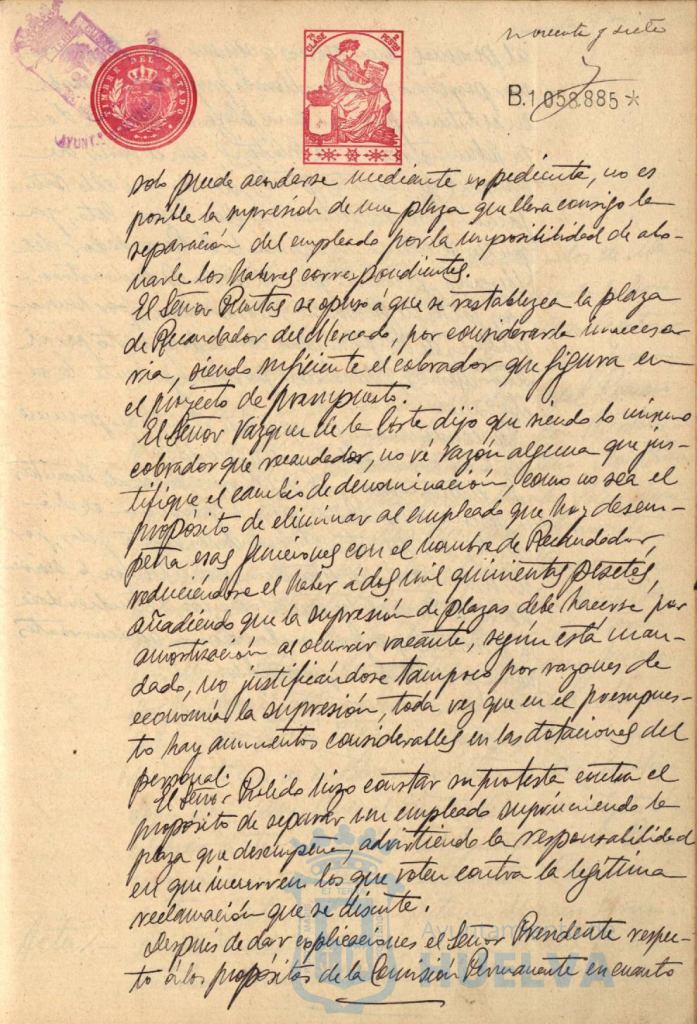 noventa y siete
TIMBRE DEL ESTADO
CLASE
PESOS
B.1058.885*
AYUNT
solo puede acordarse mediante expediente, no es
posible la supresión de una plaza que lleva consigo la
separación del empleado por la imposibilidad de abo-
narle los haberes correspondientes.
El Señor se opuso á que se restablezca la plaza
de Recaudador del Mercado, por considerarla innecesa-
ria, siendo suficiente el cobrador que figura en
el proyecto de presupuesto.
El Señor Vazquez de la Corte dijo que siendo lo mismo
cobrador que recaudador, no vé razón alguna que jus-
tifique el cambio de denominación, como no sea el
propósito de eliminar al empleado que hoy desem-
peña esas funciones con el nombre de Recaudador,
reduciéndose el haber á dos mil quinientas pesetas,
añadiendo que la supresión de plazas debe hacerse por
amortización al ocurrir vacante, según está man-
dado, no justificándose tampoco por razones de
economía la supresión, toda vez que en el presupues-
to hay aumentos considerables en las dotaciones del
personal.
El Señor Pulido hizo constar su protesta contra el
propósito de separar un empleado suprimiendo la
plaza que desempeña, advirtiendo la responsabilidad
en que incurren los que voten contra la legítima
reclamación que se discute.
Después de dar explicaciones el Señor Presidente respec-
to á los propósitos de la Comisión Permanente en cuanto
Ayuntamiento
HUELVA